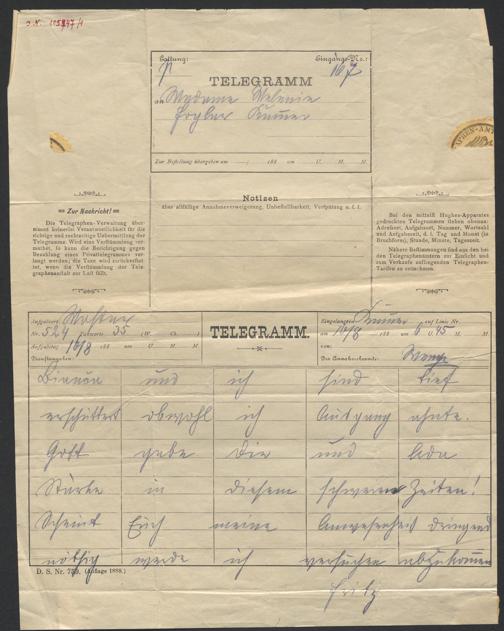 Gattung:
Eingangs-No.:
167
TELEGRAMM
an Madame Melanie
Kummer
Zur Bestellung übergeben am / 188 um U. M. M.
TELEGRAPHEN-AMT
Zur Nachricht!
Die Telegraphen-Verwaltung übernimmt keinerlei Verantwortlichkeit für die richtige und rechtzeitige Uebermittlung der Telegramme. Wird eine Verstümmlung vermuthet, so kann die Berichtigung gegen Bezahlung eines Privattelegrammes verlangt werden; die Taxe wird zurückerstattet, wenn die Verstümmlung der Telegraphenanstalt zur Last fällt.
Notizen
über allfällige Annahmeverweigerung, Unbestellbarkeit, Verspätung u. s. f.
Bei den mittelst Hughes-Apparates gedruckten Telegrammen stehen obenan: Adressat, Aufgabsort, Nummer, Wortzahl und Aufgabszeit, d. i. Tag und Monat (in Bruchform); Stunde, Minute, Tageszeit.
Nähere Bestimmungen sind aus den bei den Telegraphenämtern zur Einsicht und zum Verkaufe aufliegenden Telegraphen-Tarifen zu entnehmen.
Aufgabsort
Nr. 529 Taxworte 35 (W. Ch. )
Aufgabstag 16/8 um U. M. M.
Dienstangaben:
TELEGRAMM.
Eingelangt von Kummer auf Linie Nr.
am 16/8 um 6 U. 45 M.
von:
Der Annahmebeamte:
Bianca und ich sind tief
erschüttert obwohl ich Ausgang ahnte.
Gott gebe Dir und
Stärke in diesem schweren Zeiten!
Scheint Erich meine Anwesenheit dringend
nöthig werde ich versuchen abzukommen
Fritz
D. S. Nr. 739. (Auflage 1888.)